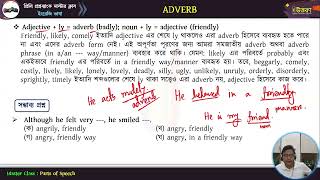 প্রিলি প্রশ্নব্যাংক মাস্টার ক্লাস
ইংরেজি ভাষা
ADVERB
উত্তরণ
Adjective + ly = adverb (badly); noun + ly = adjective (friendly)
Friendly, likely, comely ইত্যাদি adjective এর শেষে ly থাকলেও এরা adverb হিসেবে ব্যবহৃত হতে পারে
না এবং এদের adverb form নেই। এই অপূর্ণতা পূরণের জন্য আমরা সমজাতীয় adverb অথবা adverb
phrase (in a/an --- way/manner) ব্যবহার করে থাকি। যেমন: likely এর পরিবর্তে probably এবং
একইভাবে friendly এর পরিবর্তে in a friendly way/manner ব্যবহৃত হয়। তবে, beggarly, comely,
costly, lively, lonely, lovely, deadly, silly, ugly, unlikely, unruly, orderly, disorderly,
sprightly, timely ইত্যাদি শব্দগুলির শেষে ly থাকা সত্ত্বেও এরা adverb নয়, adjective হিসেবে কাজ করে।
He acts rudely.
adverb
He behaved in a friendly
manner.
He is my friend.
noun
সম্ভাব্য প্রশ্ন
Although he felt very ---, he smiled ---.
(ক) angrily, friendly
(খ) angry, friendly
(গ) angry, friendly
(ঘ) angry, in a friendly way
Master Class : Parts of Speech